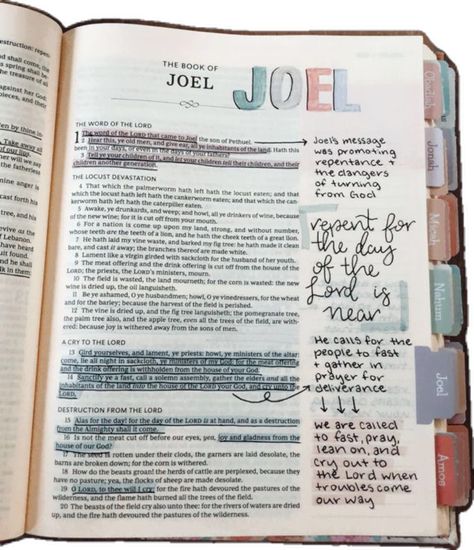 shall come,
spring shall be
the treasure of all
against her God:
pieces, and their
Take away all
of Lebanon.
have heard
fruit found.
shall walk
in them.
THE BOOK OF
JOEL
JOEL
THE WORD OF THE LORD
1 The word of the LORD that came to Joel the son of Pethuel.
2 Hear this, ye old men, and give ear, all ye inhabitants of the land. Hath this
been in your days, or even in the days of your fathers?
3 Tell ye your children of it, and let your children tell their children, and their
children another generation.
THE LOCUST DEVASTATION
4 That which the palmerworm hath left hath the locust eaten; and that
which the locust hath left hath the cankerworm eaten; and that which the can-
kerworm hath left hath the caterpiller eaten.
5 Awake, ye drunkards, and weep; and howl, all ye drinkers of wine, because
of the new wine; for it is cut off from your mouth.
6 For a nation is come up upon my land, strong, and without number,
whose teeth are the teeth of a lion, and he hath the cheek teeth of a great lion.
7 He hath laid my vine waste, and barked my fig tree: he hath made it clean
bare, and cast it away; the branches thereof are made white.
8 Lament like a virgin girded with sackcloth for the husband of her youth.
9 The meat offering and the drink offering is cut off from the house of the
LORD; the priests, the LORD's ministers, mourn.
10 The field is wasted, the land mourneth; for the corn is wasted: the new
wine is dried up, the oil languisheth.
11 Be ye ashamed, O ye husbandmen; howl, O ye vinedressers, for the wheat
and for the barley; because the harvest of the field is perished.
12 The vine is dried up, and the fig tree languisheth; the pomegranate tree,
the palm tree also, and the apple tree, even all the trees of the field, are with-
ered: because joy is withered away from the sons of men.
A CRY TO THE LORD
13 Gird yourselves, and lament, ye priests: howl, ye ministers of the altar:
come, lie all night in sackcloth, ye ministers of my God: for the meat offering
and the drink offering is withholden from the house of your God.
14 Sanctify ye a fast, call a solemn assembly, gather the elders and all the
inhabitants of the land into the house of the LORD your God, and cry unto the
LORD,
DESTRUCTION FROM THE LORD
15 Alas for the day! for the day of the LORD is at hand, and as a destruction
from the Almighty shall it come.
16 Is not the meat cut off before our eyes, yea, joy and gladness from the
house of our God?
17 The seed is rotten under their clods, the garners are laid desolate, the
barns are broken down; for the corn is withered.
18 How do the beasts groan! the herds of cattle are perplexed, because they
have no pasture; yea, the flocks of sheep are made desolate.
19 O LORD, to thee will I cry: for the fire hath devoured the pastures of the
wilderness, and the flame hath burned all the trees of the field.
20 The beasts of the field cry also unto thee: for the rivers of waters are dried
up, and the fire hath devoured the pastures of the wilderness.
Joel's message
was promoting
repentance +
the dangers
of turning
from God
repent for
the day
of the
Lord is
near
He calls for the
people to fast
+ gather in
prayer for
deliverance
we are called
to fast, pray,
lean on, and
cry out to
the Lord when
troubles come
our way
Obadiah
Jonah
Micah
Nahum
Joel
Amos